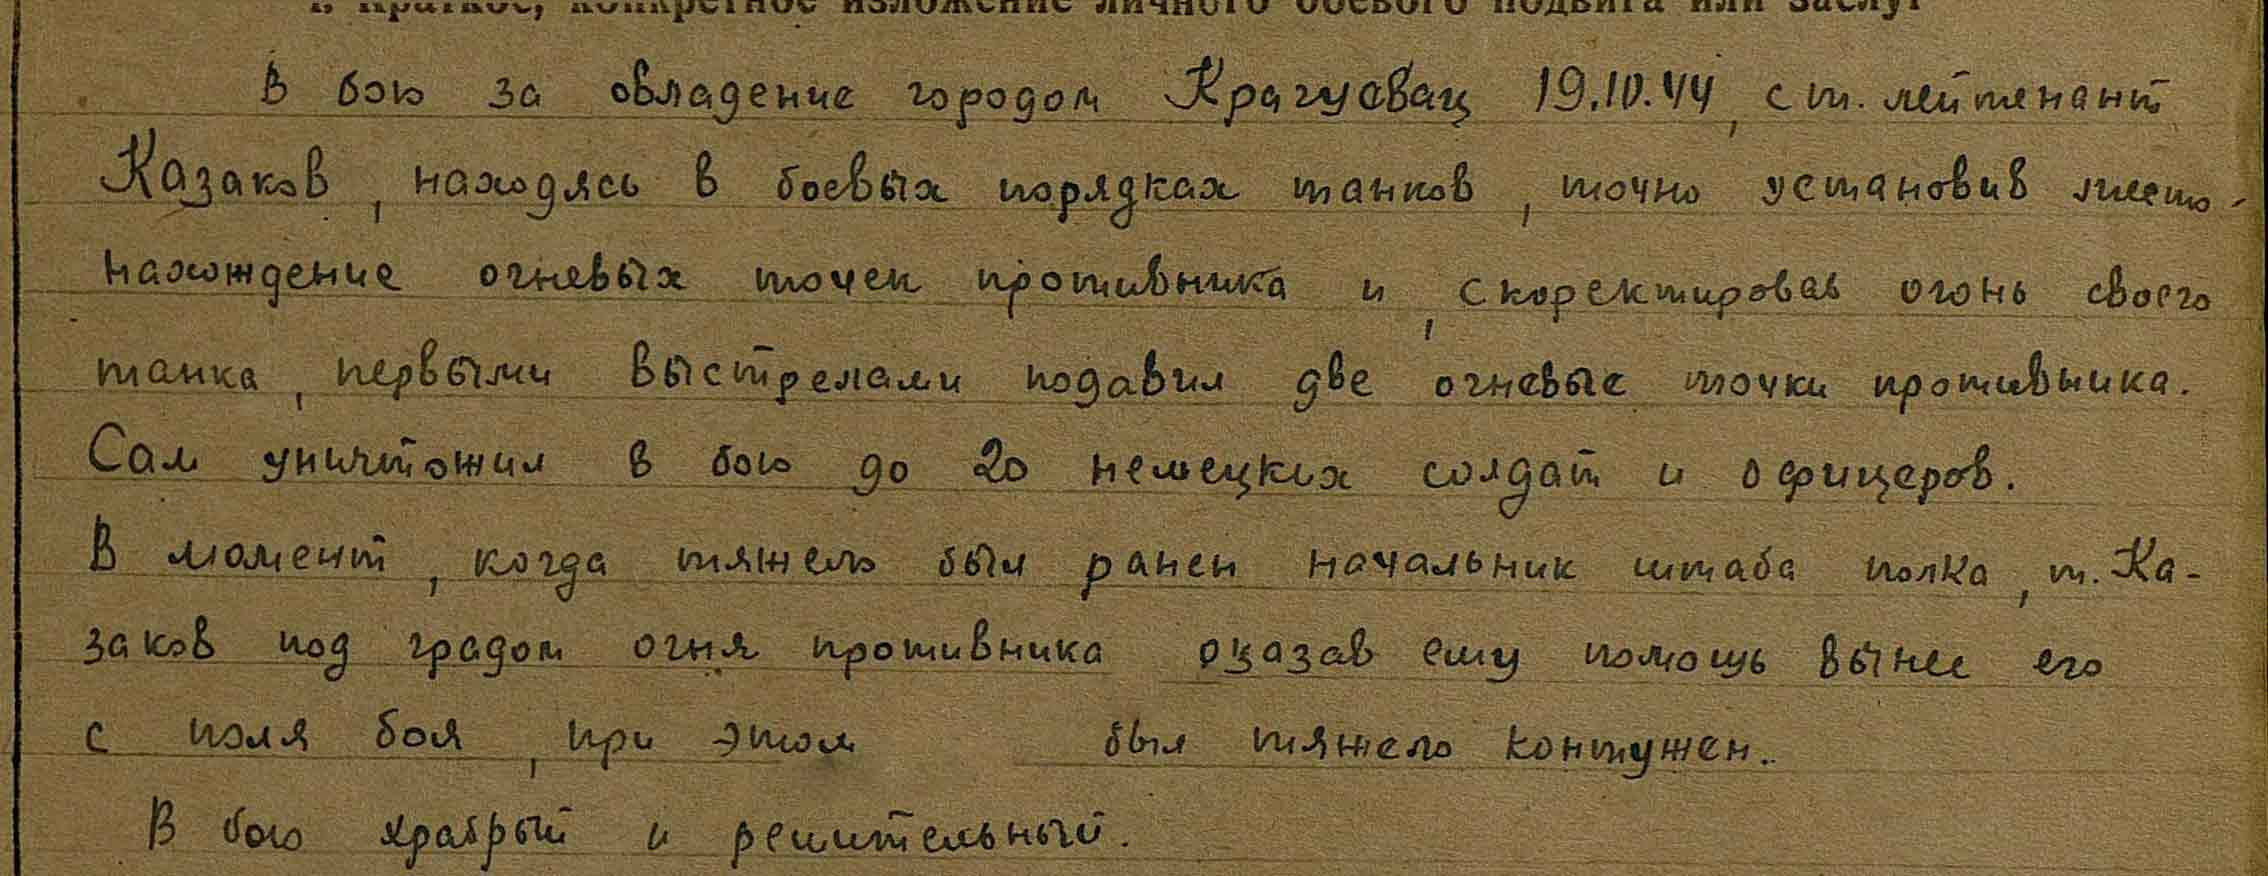 I. Краткое, конкретное изложение личного боевого подвига или заслуг
В бою за овладение городом Крагуевац 19.10.44, ст. лейтенант
Казаков, находясь в боевых порядках танков, точно установив место-
нахождение огневых точек противника и, скоректировав огонь своего
танка, первыми выстрелами подавил две огневые точки противника.
Сам уничтожил в бою до 20 немецких солдат и офицеров.
В момент, когда тяжело был ранен начальник штаба полка, т. Ка-
заков под градом огня противника оказав ему помощь вынес его
с поля боя, при этом был тяжело контужен.
В бою храбрый и решительный.